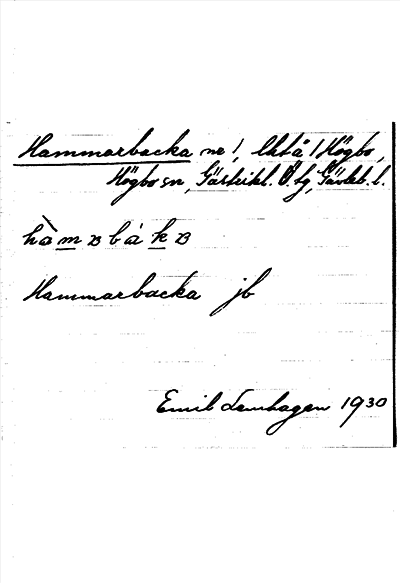 Hammarbacka nr 1, lht å 1 Högbo,
Högbo sn, Gästrikl. Ö. tg, Gävleb. l.
hàmʙbákʙ
Hammarbacka jb
Emil Lenhagen 1930